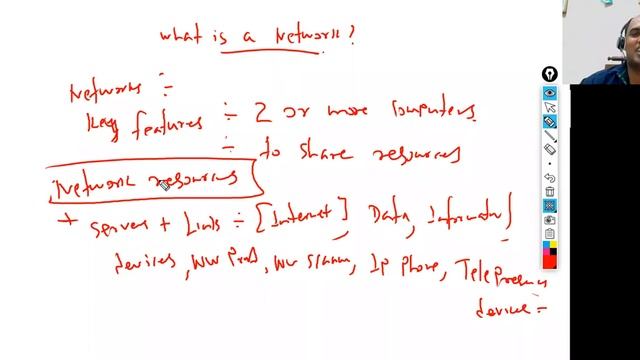 what is a Network?
Networks ÷
Key features ÷ 2 or more computers
÷ to share resources
Network resources
+ Servers + Links ÷ [Internet], Data, Information
devices, NW Print, NW Scann, Ip Phone, TelePresence
devices